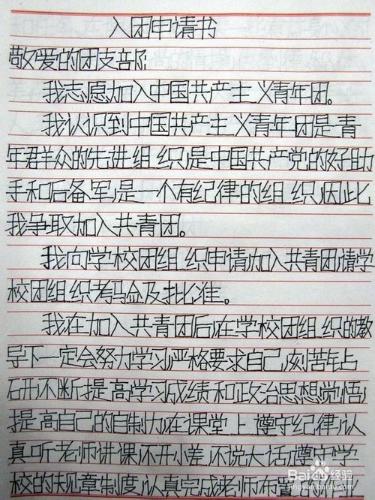 入团申请书
敬爱的团支部:
我志愿加入中国共产主义青年团。
我认识到中国共产主义青年团是青
年群众的先进组织,是中国共产党的好助
手和后备军,是一个有纪律的组织,因此
我争取加入共青团。
我向学校团组织申请,加入共青团,请学
校团组织考验及批准。
我在加入共青团后,在学校团组织的教
导下一定会努力学习,严格要求自己,刻苦钻
研,不断提高学习成绩和政治思想觉悟,
提高自己的自制力,在课堂上,遵守纪律,认
真听老师讲课,不开小差,不说大话,遵守学
校的规章制度,认真完成老师布置
Baidu经验